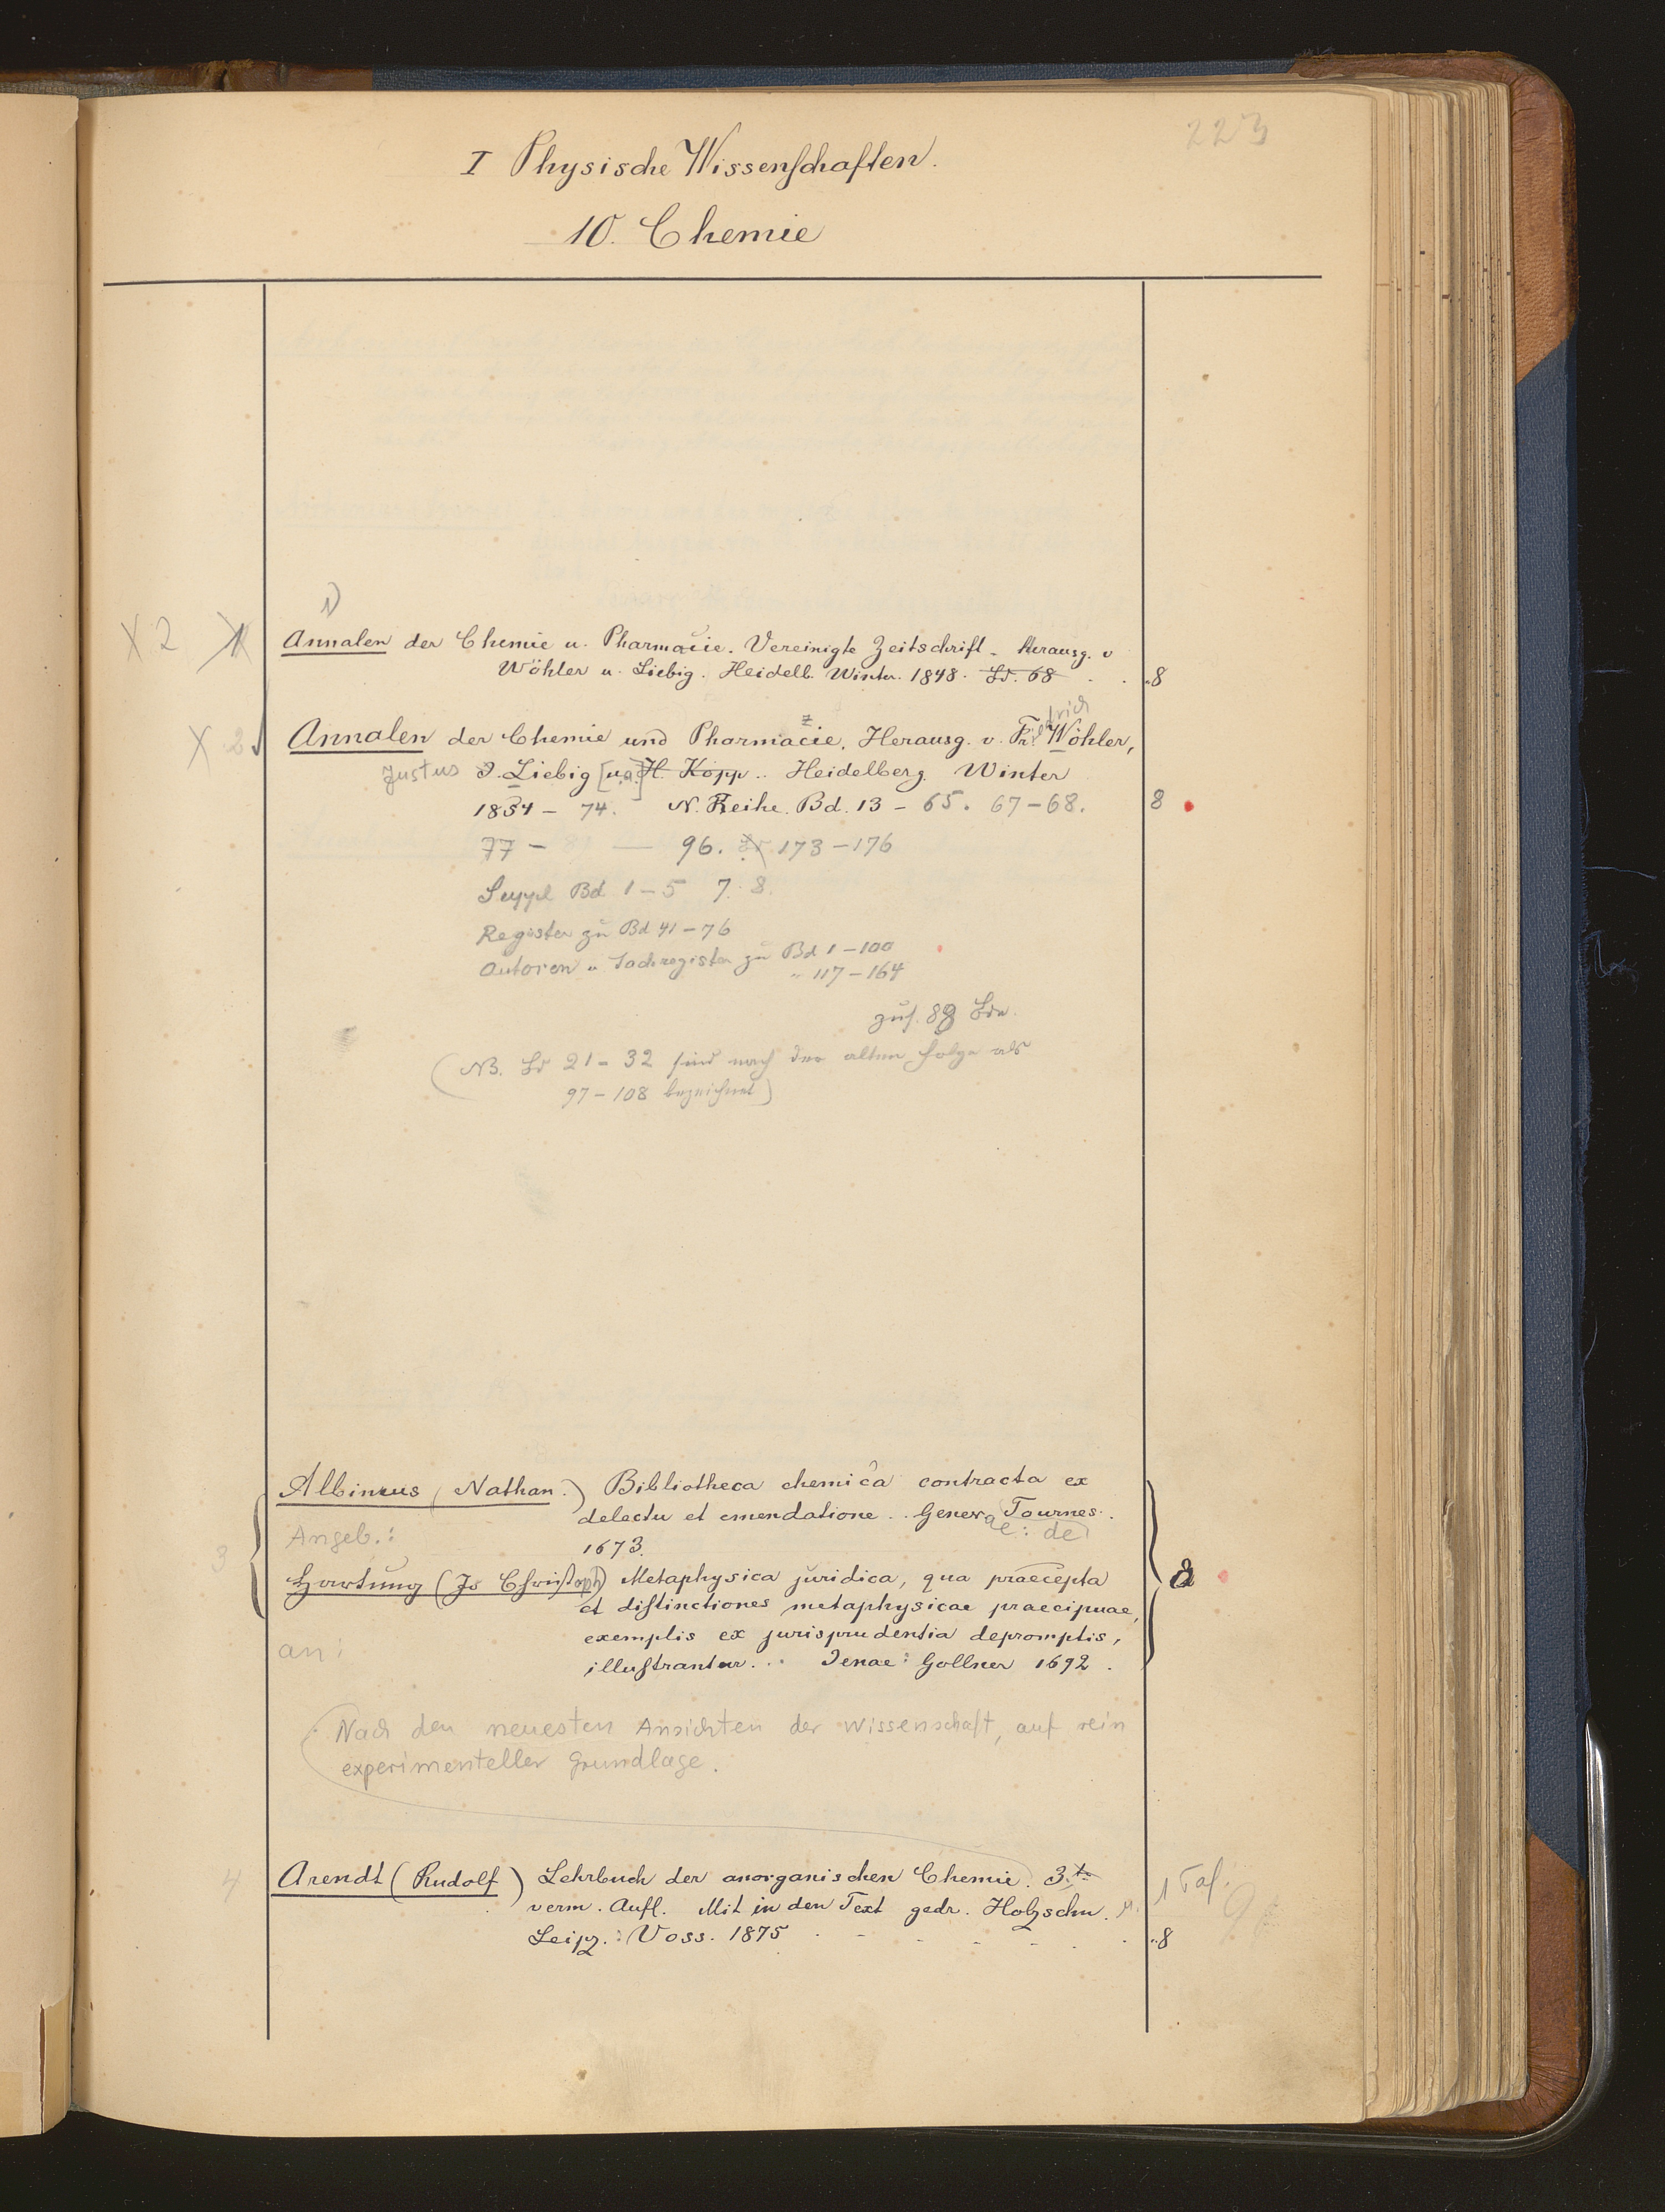 223
I Physische Wissenschaften.
10. Chemie
1)
X 2 1 Annalen der Chemie u. Pharmacie. Vereinigte Zeitschrift. Herausg. v
Wöhler u. Liebig. Heidelb. Winter. 1848. Bd. 68 . . 8
X 2 Annalen der Chemie und Pharmacie. Herausg. v. Friedrich Wöhler,
Justus J. Liebig [u. a.] H. Kopp.. Heidelberg. Winter
1854 – 74. N. Reihe. Bd. 13 – 65. 67 – 68. 8
77 – 96. 173 – 176
Suppl Bd 1 – 5 7. 8.
Register zu Bd 41 – 76
Autoren u Sachregister zu Bd 1 – 100
" 117 – 164
zus. 89 Bde.
(NB. Bd 21 – 32 sind nach der alten Folge als
97 – 108 bezeichnet)
Albineus (Nathan.) Bibliotheca chemica contracta ex
delectu et emendatione .. Genevae: de Tournes.
Angeb.:
1673.
3
Hartung (Jo Christoph) Metaphysica juridica, qua praecepta 8
et distinctiones metaphysicae praecipuae,
exemplis ex jurisprudentia depromptis,
an:
illustrantur... Jenae: Gollner 1692.
Nach den neuesten Ansichten der Wissenschaft, auf rein
experimenteller Grundlage.
4 Arendt (Rudolf) Lehrbuch der anorganischen Chemie. 3.te
verm. Aufl. Mit in den Text gedr. Holzschn. u. 1 Taf.
Leipz.: Voss. 1875 . . 8